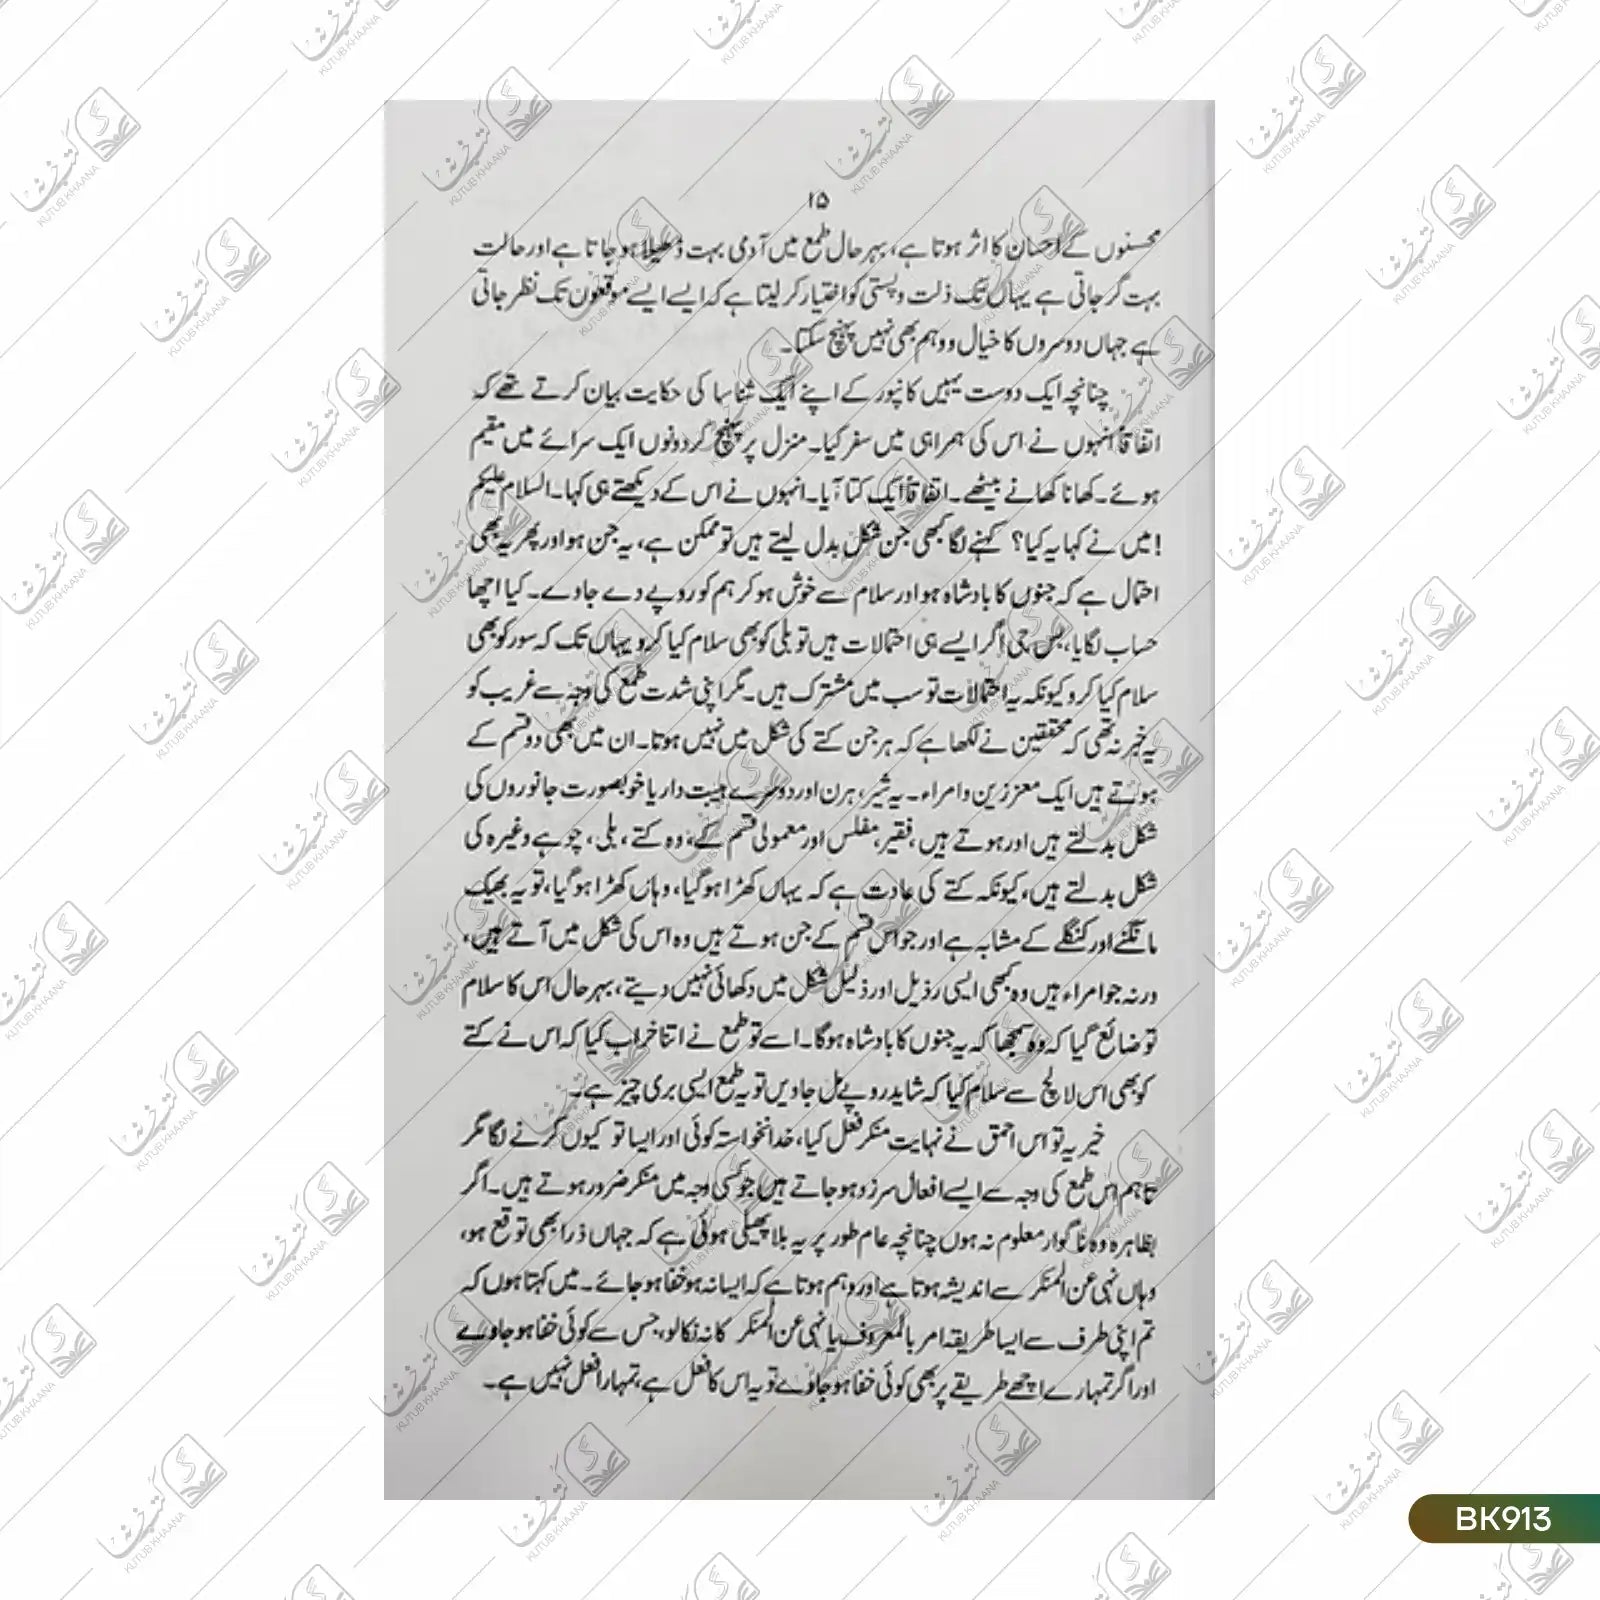 ۱۵
محسنوں کے احسان کا اثر ہوتا ہے، بہر حال طمع میں آدمی بہت ڈھیلا ہو جاتا ہے اور حالت
بہت گر جاتی ہے یہاں تک ذلت و پستی کو اختیار کر لیتا ہے کہ ایسے ایسے موقعوں تک نظر جاتی
ہے جہاں دوسروں کا خیال و وہم بھی نہیں پہنچ سکتا۔
چنانچہ ایک دوست یہیں کانپور کے اپنے ایک شناسا کی حکایت بیان کرتے تھے کہ
اتفاقاً انہوں نے اس کی ہمراہی میں سفر کیا۔ منزل پر پہنچ کر دونوں ایک سرائے میں مقیم
ہوئے۔ کھانا کھانے بیٹھے۔ اتفاقاً ایک کتا آیا۔ انہوں نے اس کے دیکھتے ہی کہا۔ السلام علیکم
! میں نے کہا یہ کیا؟ کہنے لگا کبھی جن شکل بدل لیتے ہیں تو ممکن ہے، یہ جن ہو اور پھر یہ بھی
احتمال ہے کہ جنوں کا بادشاہ ہو اور سلام سے خوش ہو کر ہم کو روپے دے جاوے۔ کیا اچھا
حساب لگایا، بس جی اگر ایسے ہی احتمالات ہیں تو بلی کو بھی سلام کیا کرو یہاں تک کہ سور کو بھی
سلام کیا کرو کیونکہ یہ احتمالات تو سب میں مشترک ہیں۔ مگر اپنی شدت طمع کی وجہ سے غریب کو
یہ خبر نہ تھی کہ محققین نے لکھا ہے کہ ہر جن کتے کی شکل میں نہیں ہوتا۔ ان میں بھی دو قسم کے
ہوتے ہیں ایک معززین و امراء۔ یہ شیر، ہرن اور دوسرے ہیبت دار یا خوبصورت جانوروں کی
شکل بدلتے ہیں اور ہوتے ہیں، فقیر، مفلس اور معمولی قسم کے، وہ کتے، بلی، چوہے وغیرہ کی
شکل بدلتے ہیں، کیونکہ کتے کی عادت ہے کہ یہاں کھڑا ہو گیا، وہاں کھڑا ہو گیا، تو یہ بھیک
مانگنے اور کنگلے کے مشابہ ہے اور جو اس قسم کے جن ہوتے ہیں وہ اس کی شکل میں آتے ہیں،
ورنہ جو امراء ہیں وہ کبھی ایسی رذیل اور ذلیل شکل میں دکھائی نہیں دیتے، بہر حال اس کا سلام
تو ضائع گیا کہ وہ سمجھا کہ یہ جنوں کا بادشاہ ہوگا۔ اسے تو طمع نے اتنا خراب کیا کہ اس نے کتے
کو بھی اس لالچ سے سلام کیا کہ شاید روپے مل جاویں تو یہ طمع ایسی بری چیز ہے۔
خیر یہ تو اس احمق نے نہایت منکر فعل کیا، خدانخواستہ کوئی اور ایسا تو کیوں کرنے لگا مگر
تاہم اس طمع کی وجہ سے ایسے افعال سرزد ہو جاتے ہیں جو کسی وجہ میں منکر ضرور ہوتے ہیں۔ اگر
بظاہرہ وہ ناگوار معلوم نہ ہوں چنانچہ عام طور پر یہ بلا پھیلی ہوئی ہے کہ جہاں ذرا بھی توقع ہو،
وہاں نہی عن المنکر سے اندیشہ ہوتا ہے اور وہم ہوتا ہے کہ ایسا نہ ہو خفا ہو جائے۔ میں کہتا ہوں کہ
تم اپنی طرف سے ایسا طریقہ امر بالمعروف یا نہی عن المنکر کا نہ نکالو، جس سے کوئی خفا ہو جاوے
اور اگر تمہارے اچھے طریقے پر بھی کوئی خفا ہو جاوے تو یہ اس کا فعل ہے، تمہارا فعل نہیں ہے۔
کتب خانہ
KUTUB KHAANA
BK913